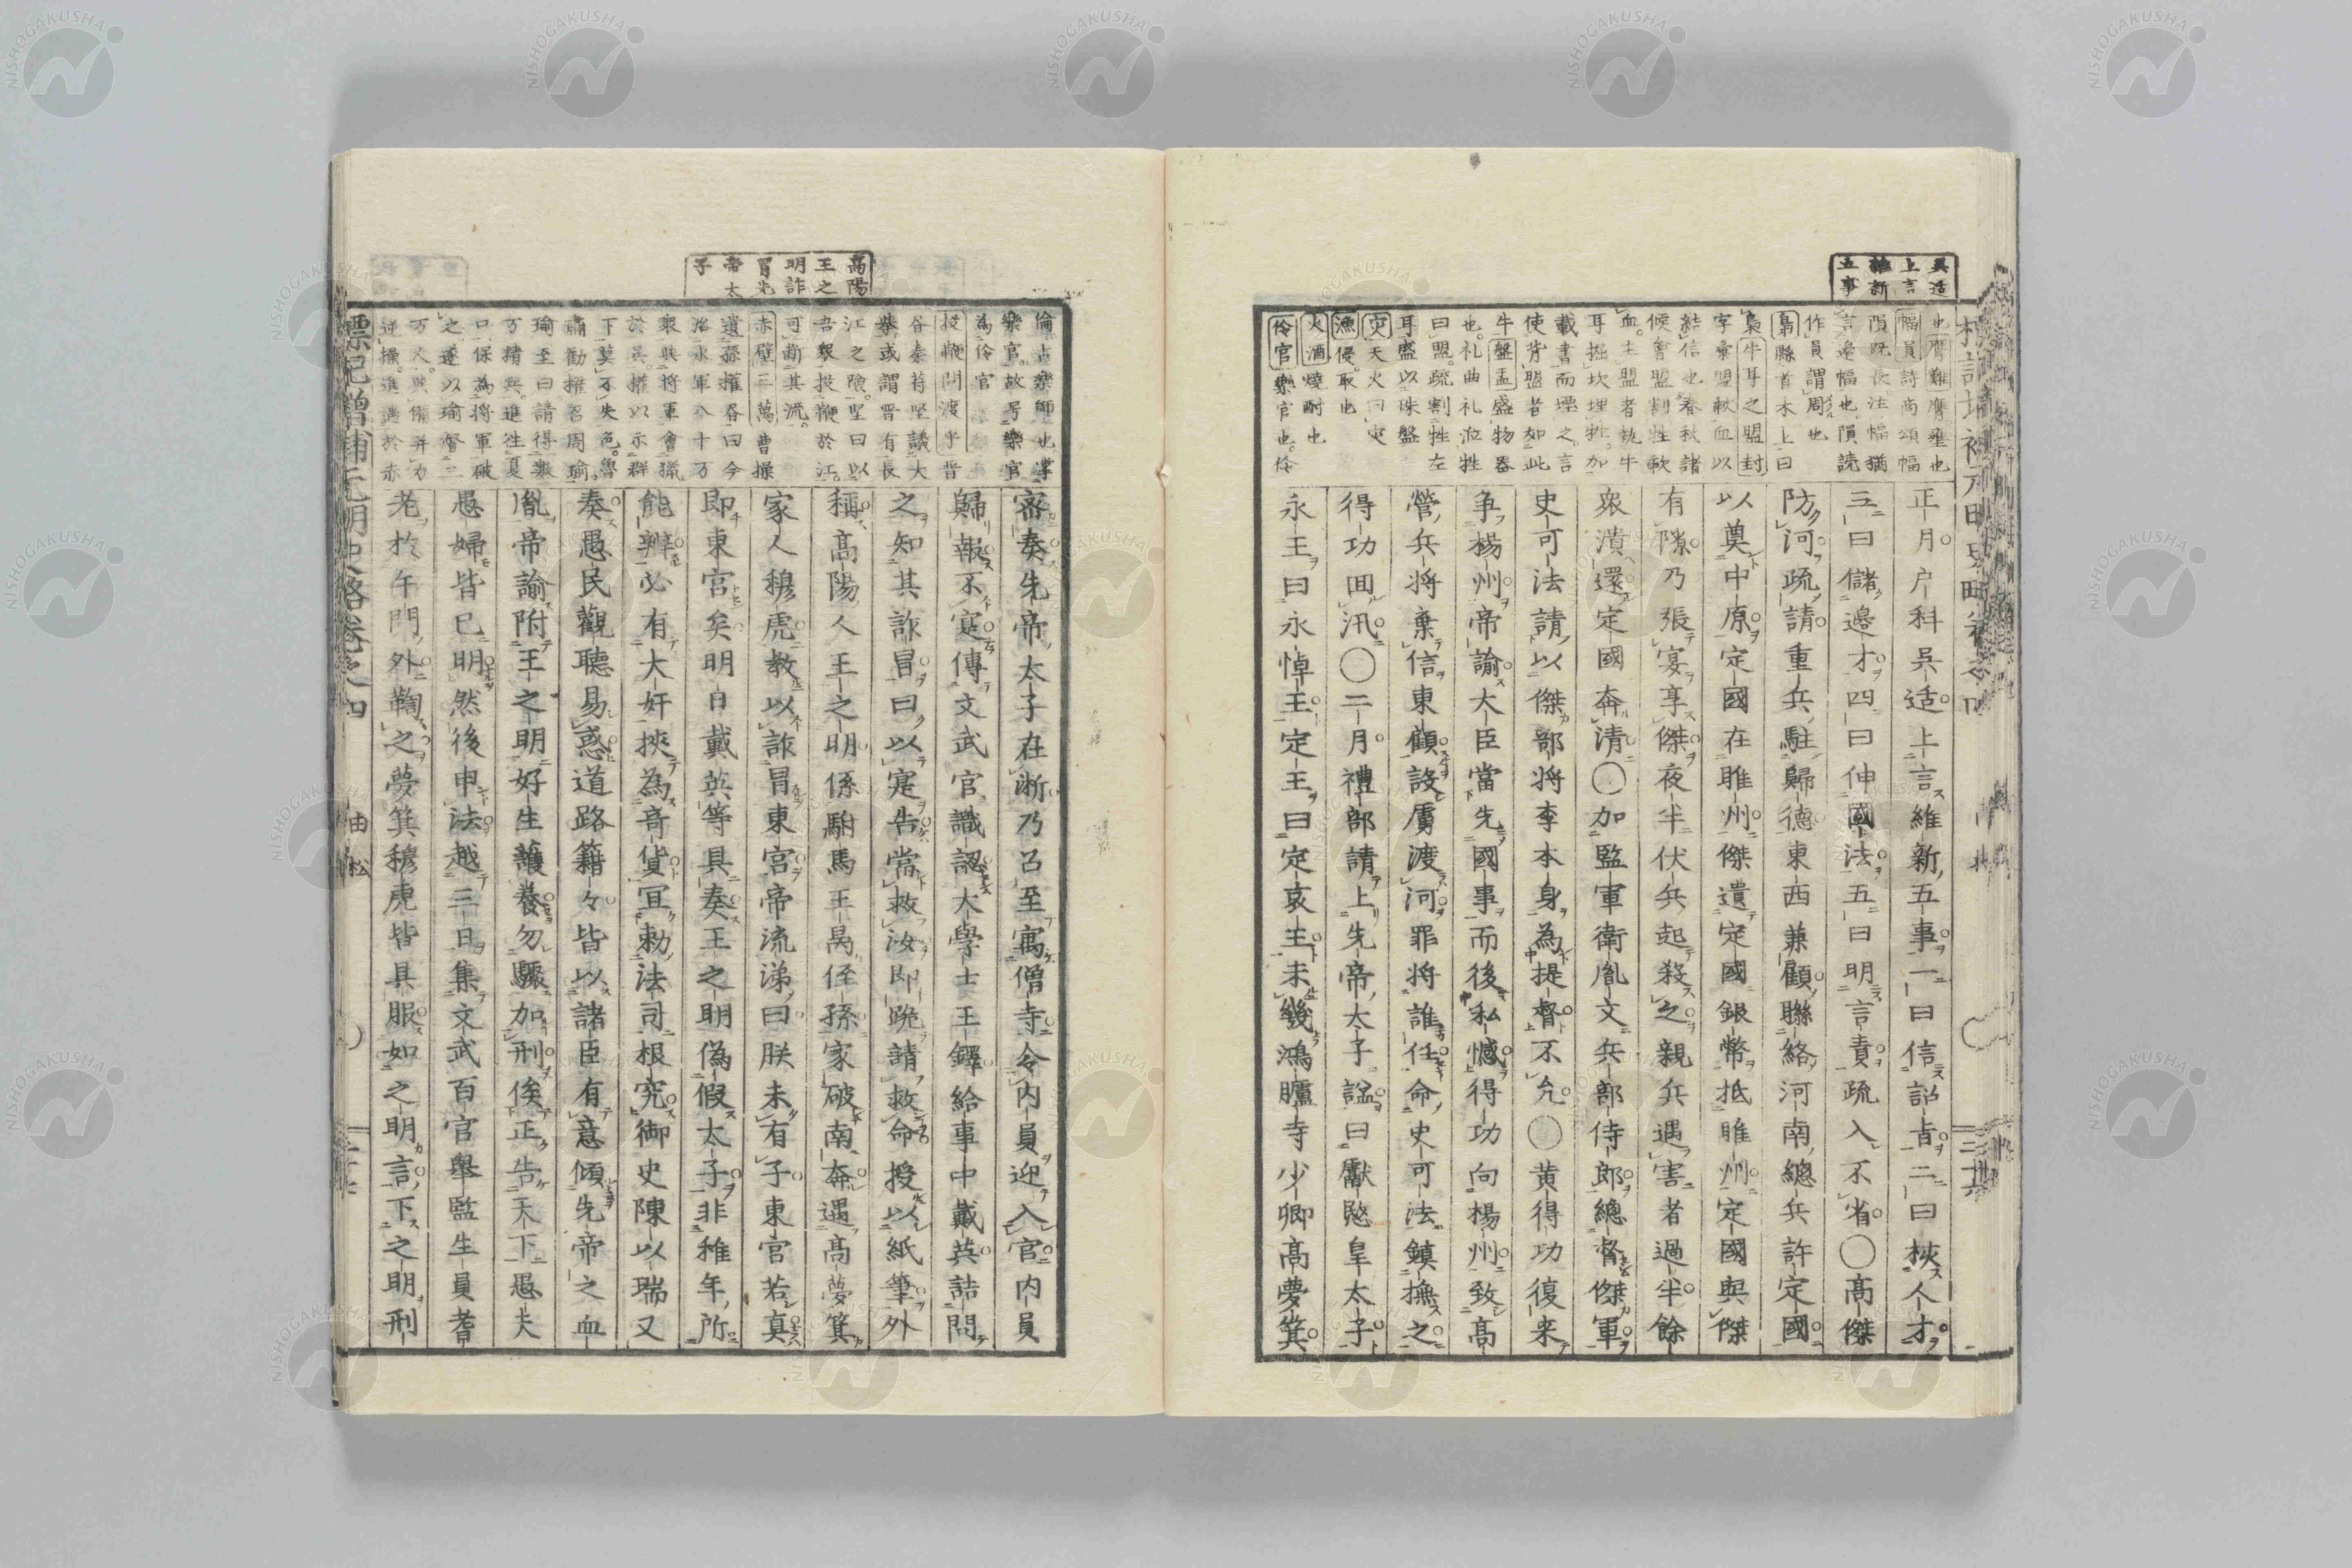 吴适
上言
維新
五事
正月户科吴适上言維新五事一曰信詔旨二曰核人才
三曰儲邊才四曰伸國法五曰明言責疏入不省〇高傑
防河疏請重兵駐歸德東西兼顧聯絡河南總兵許定國
以奠中原定國在睢州傑遺定國銀幣抵睢州定國與傑
有隙乃張宴享傑夜半伏兵起殺之親兵遇害者過半餘
衆潰還定國奔清〇加監軍衛胤文兵部侍郎總督傑軍
史可法請以傑部将李本身為提督不允〇黄得功復来
争楊州帝諭大臣當先國事而後私憾得功向楊州致高
營兵将棄信東顧設虜渡河罪将誰任命史可法鎮撫之
得功囬汛〇二月禮部請上先帝太子諡曰獻愍皇太子
永王曰永悼王定王曰定哀王未幾鴻臚寺少卿高夢箕
也膺難膺壅也
幅員詩商頌幅
隕既長注幅猶
言邉幅也隕読
作員謂周也
梟縣首木上曰
梟牛耳之盟封
字彙盟歃血以
結信也春秋諸
候會盟割牲歃
血主盟者執牛
耳掘坎埋牲加
載書而堙之言
使背盟者如此
牛盤盂盛物器
也礼曲礼涖牲
曰盟疏割牲左
耳盛以珠盤
灾天火曰灾
漁侵取也
火酒燒酎也
伶官樂官也伶
高陽
王之
明詐
冒先
帝太
子
密奏先帝太子在浙乃召至寓僧寺令内員迎入官内員
歸報不寔傳文武官識認大學士王鐸給事中戴英詰問
之知其詐冒曰以寔告當救汝即跪請救命授以紙筆外
稱高陽人王之明係駙馬王昺侄孫家破南奔遇高夢箕
家人穆虎教以詐冒東宫帝流涕曰朕未有子東宫若真
即東宫矣明日戴英等具奏王之明偽假太子非稚年所
能辨必有大奸挾為竒貨宜勅法司根究御史陳以瑞又
奏愚民觀聽易惑道路籍々皆以諸臣有意傾先帝之血
胤帝諭附王之明好生護養勿驟加刑俟正告天下愚夫
愚婦皆已明然後申法越三日集文武百官舉監生員耆
老於午門外鞫之夢箕穆虎皆具服如之明言下之明刑
倫古樂師也掌
樂官故号樂官
為伶官
投鞭問渡乎晋
谷秦苻堅議大
舉或謂晋有長
江之險堅曰以
吾衆投鞭於江
可断其流
赤壁三萬曹操
遺孫權各曰今
治水軍八十万
衆與将軍會獵
於呉權以示群
下莫不失色魯
肅勸權召周瑜
瑜至曰請得數
万精兵進徃夏
口保為将軍破
之遂以瑜督三
万人與備并力
逆操進遇於赤
標記增補元明史畧巻之四